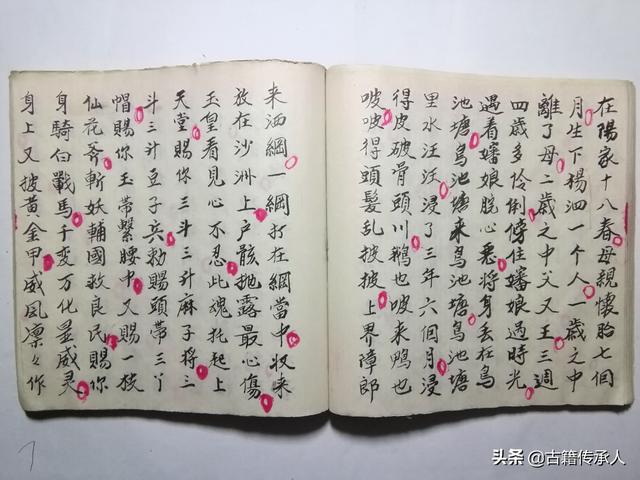 在陽家十八春母親懷胎七個
月生下楊泗一个人一歲之中
離了母二歲之中父又王三週
四歲多伶俐傍住嬸娘過時光
遇着嬸娘脘心惡將身丢在烏
池塘烏池塘來烏池塘烏池塘
里水汪汪浸了三年六個月浸
得皮破骨頭川鵝也啵来鴨也
啵啵得頭髮乱披披上界障郎
来洒綱一綱打在綱當中収来
放在沙洲上尸骸抛露最心傷
玉皇看見心不忍此魂托起上
天堂賜你三斗三升麻子将三
斗三升豆子兵勅賜頭帶三丫
帽賜你玉带繫腰中又賜一枝
仙花斧斬妖輔國救良民賜你
身騎白戰馬千变万化显威灵
身上又披黄金甲威风凛々作
头条 @古籍传承人